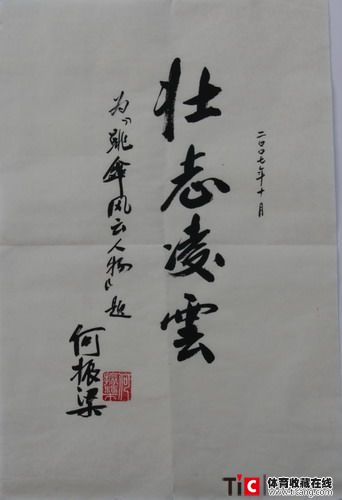 二〇〇七年十月
壮志凌雲
为《跳伞风云人物》题
何振梁
TiC 体育收藏在线
www.ticang.com